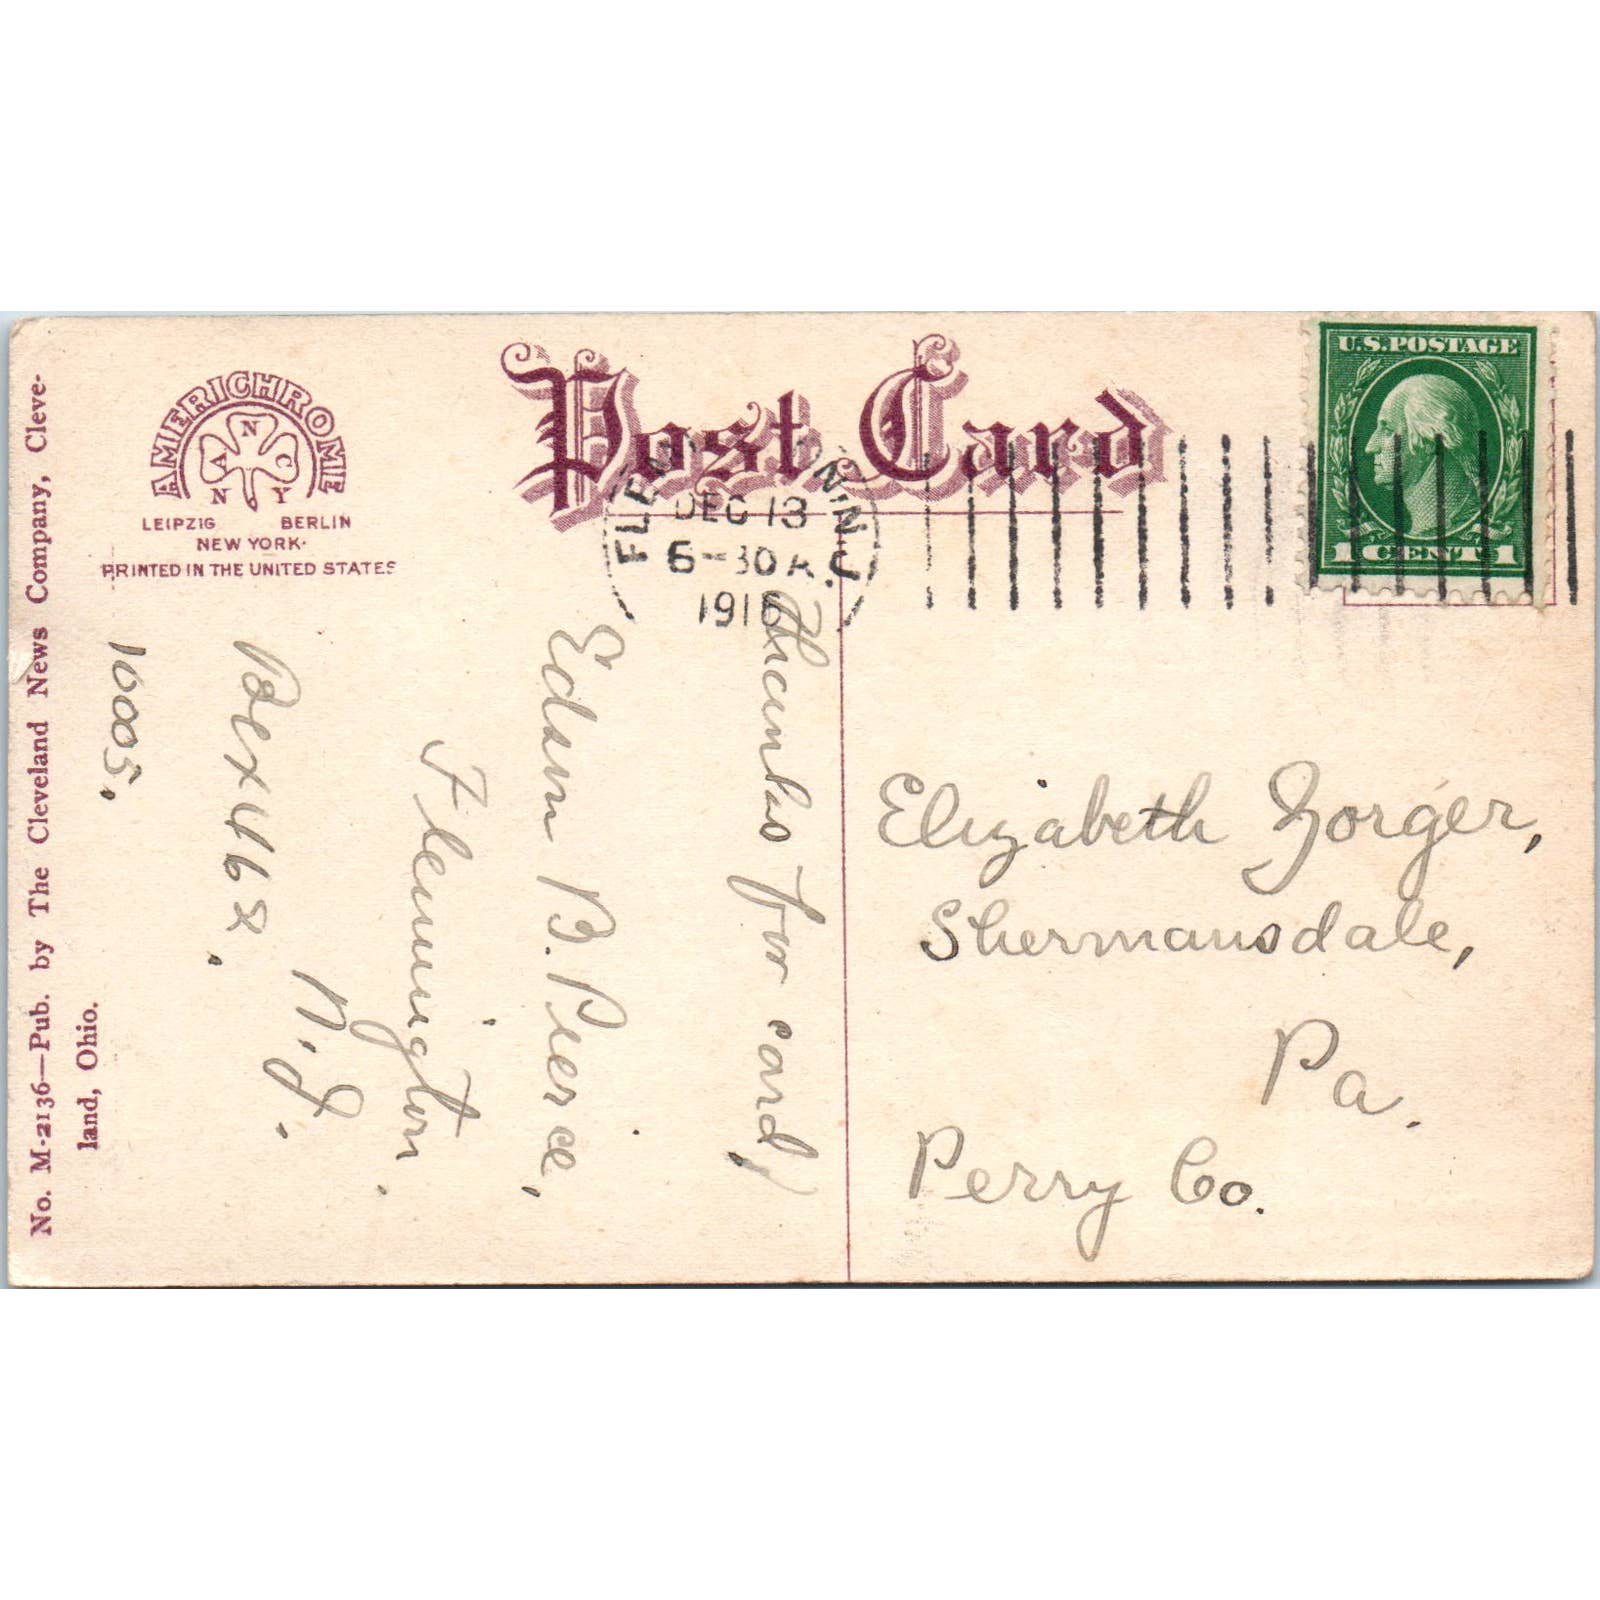 Post Card
AMERICHROME
N
A C
N Y
LEIPZIG BERLIN
NEW YORK.
PRINTED IN THE UNITED STATES
No. M-2136—Pub. by The Cleveland News Company, Cleve-
land, Ohio.
DEC 13
6-30 A.
1916
N.J.
U.S. POSTAGE
1 CENT 1
Thanks for card,
Edson B. Pierce,
Flemington.
N.J.
Box 462.
10005.
Elizabeth Zorger,
Shermansdale,
Pa.
Perry Co.